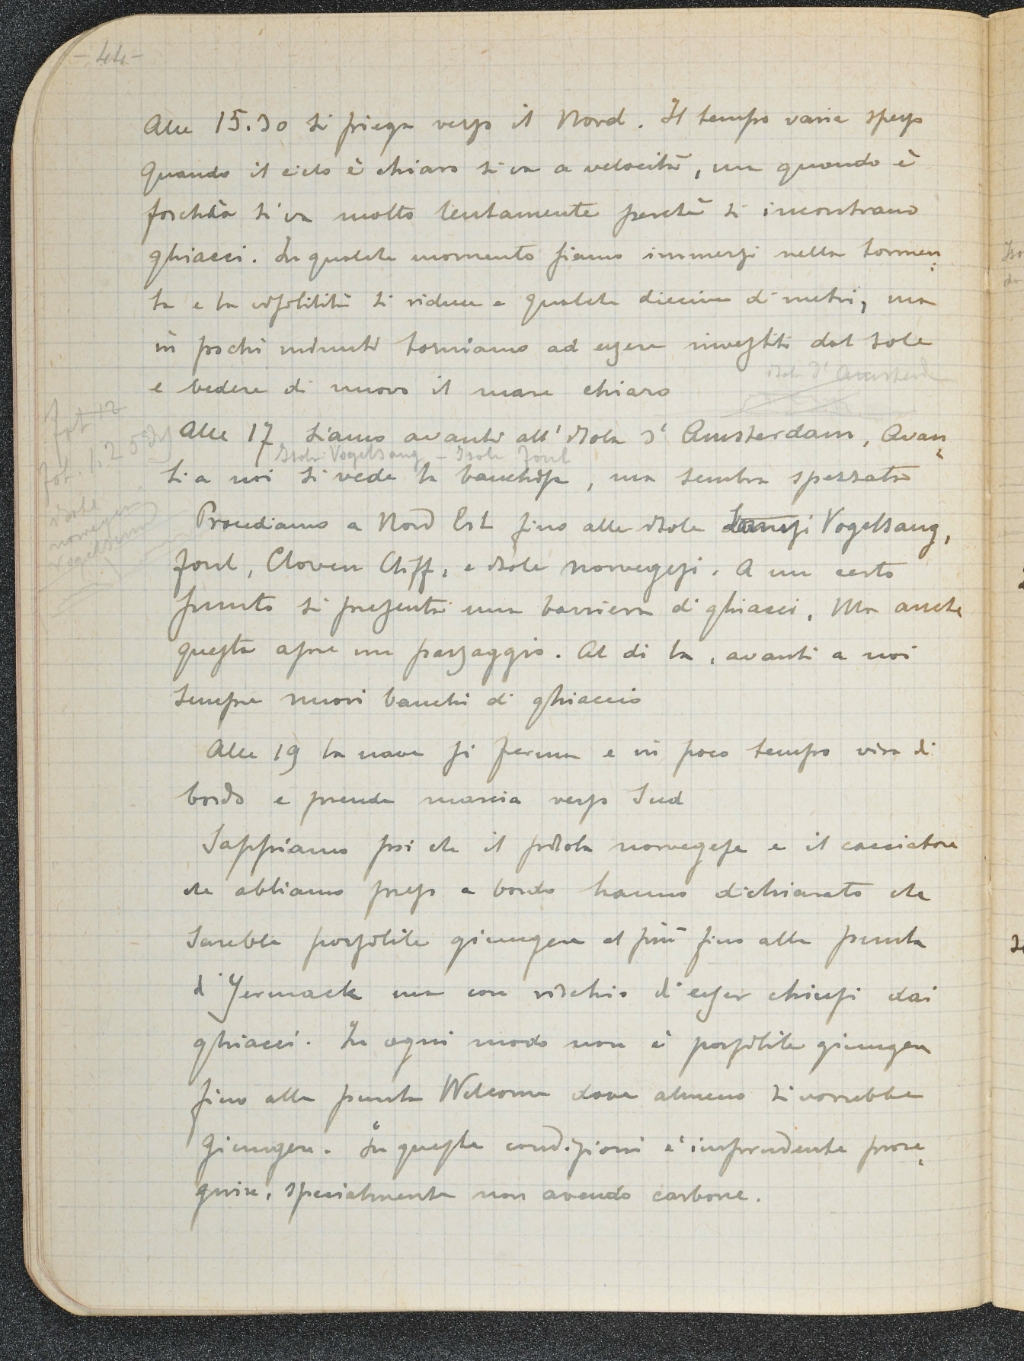 - 44 -
Alle 15.30 si piega verso il Nord. Il tempo varia spesso
Quando il cielo è chiaro si va a velocità, ma quando è
foschia si va molto lentamente perché si incontrano
ghiacci. In qualche momento siamo immersi nella tormen=
ta e la visibilità si riduce a qualche diecina di metri, ma
in pochi minuti torniamo ad essere investiti dal sole
e vedere di nuovo il mare chiaro
isola d'Amsterdam
Alle 17 siamo avanti all'isola d'Amsterdam, Avan=
Isola Vogelsang - Isola Foul
ti a noi si vede la banchisa, ma sembra spezzata
Procediamo a Nord Est fino alle isole Vogelsang,
Foul, Cloven Cliff, e isole norvegesi. A un certo
punto si presenta una barriera di ghiacci. Ma anche
questa apre un passaggio. Al di la, avanti a noi
sempre nuovi banchi di ghiaccio
isole
norvegesi
Vogelsang
Alle 19 la nave si ferma e in poco tempo vira di
bordo e prende marcia verso Sud
Sappiamo poi che il pilota norvegese e il cacciatore
che abbiamo preso a bordo hanno dichiarato che
sarebbe possibile giungere al più fino alla punta
d'Yermack ma con rischio di esser chiusi dai
ghiacci. In ogni modo non è possibile giungere
fino alla punta Welcome dove almeno si vorrebbe
giungere. In queste condizioni è imprudente prose=
guire, specialmente non avendo carbone.